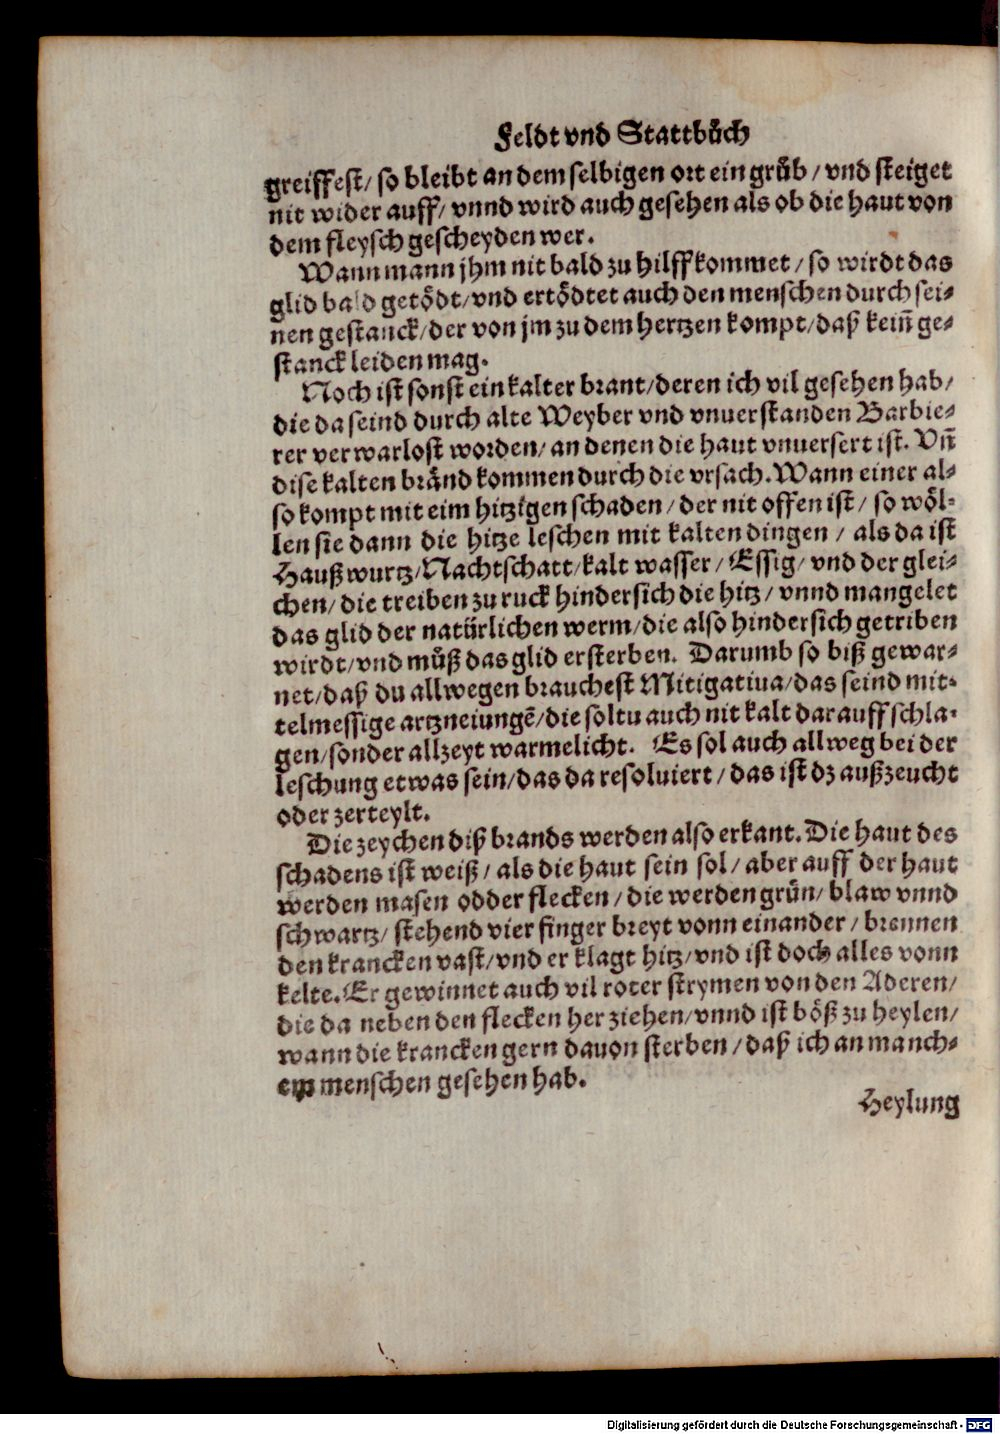 Feldt vnd Stattbůch
greiffest/ so bleibt an dem selbigen ort ein grůb / vnd steiget
nit wider auff/ vnnd wird auch gesehen als ob die haut von
dem fleysch gescheyden wer.
Wann mann jhm nit bald zu hilff kommet / so wirdt das
glid bald getödt/vnd ertödtet auch den menschen durch sei⸗
nen gestanck/der von jm zu dem hertzen kompt/daß kein̄ ge⸗
stanck leiden mag.
Noch ist sonst ein kalter brant/deren ich vil gesehen hab/
die da seind durch alte Weyber vnd vnuerstanden Barbie⸗
rer verwarlost worden/ an denen die haut vnuersert ist. Vn̄
dise kalten bränd kommen durch die vrsach. Wann einer al⸗
so kompt mit eim hitzigen schaden / der nit offen ist / so wöl⸗
len sie dann die hitze leschen mit kalten dingen / als da ist
Haußwurtz/Nachtschatt/kalt wasser / Essig/ vnd der glei⸗
chen/ die treiben zu ruck hindersich die hitz/ vnnd mangelet
das glid der natürlichen werm/die also hindersich getriben
wirdt/vnd můß das glid ersterben. Darumb so biß gewar⸗
net/daß du allwegen brauchest Mitigatiua/das seind mit⸗
telmessige artzneiungē/die soltu auch nit kalt darauff schla⸗
gen/sonder allzeyt warmelicht. Es sol auch allweg bei der
leschung etwas sein/das da resoluiert / das ist dz außzeucht
oder zerteylt.
Die zeychen diß brands werden also erkant. Die haut des
schadens ist weiß / als die haut sein sol / aber auff der haut
werden masen odder flecken / die werden grün/ blaw vnnd
schwartz/ stehend vier finger breyt vonn einander / brennen
den krancken vast/vnd er klagt hitz/vnd ist doch alles vonn
kelte. Er gewinnet auch vil roter strymen von den Aderen/
die da neben den flecken her ziehen/vnnd ist böß zu heylen/
wann die krancken gern dauon sterben / daß ich an manch⸗
em menschen gesehen hab.
Heylung
Digitalisierung gefördert durch die Deutsche Forschungsgemeinschaft - DFG